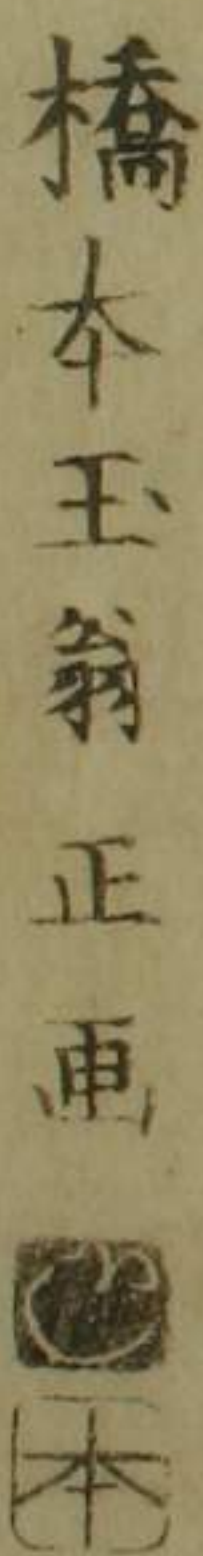 橋本玉翁正画
本